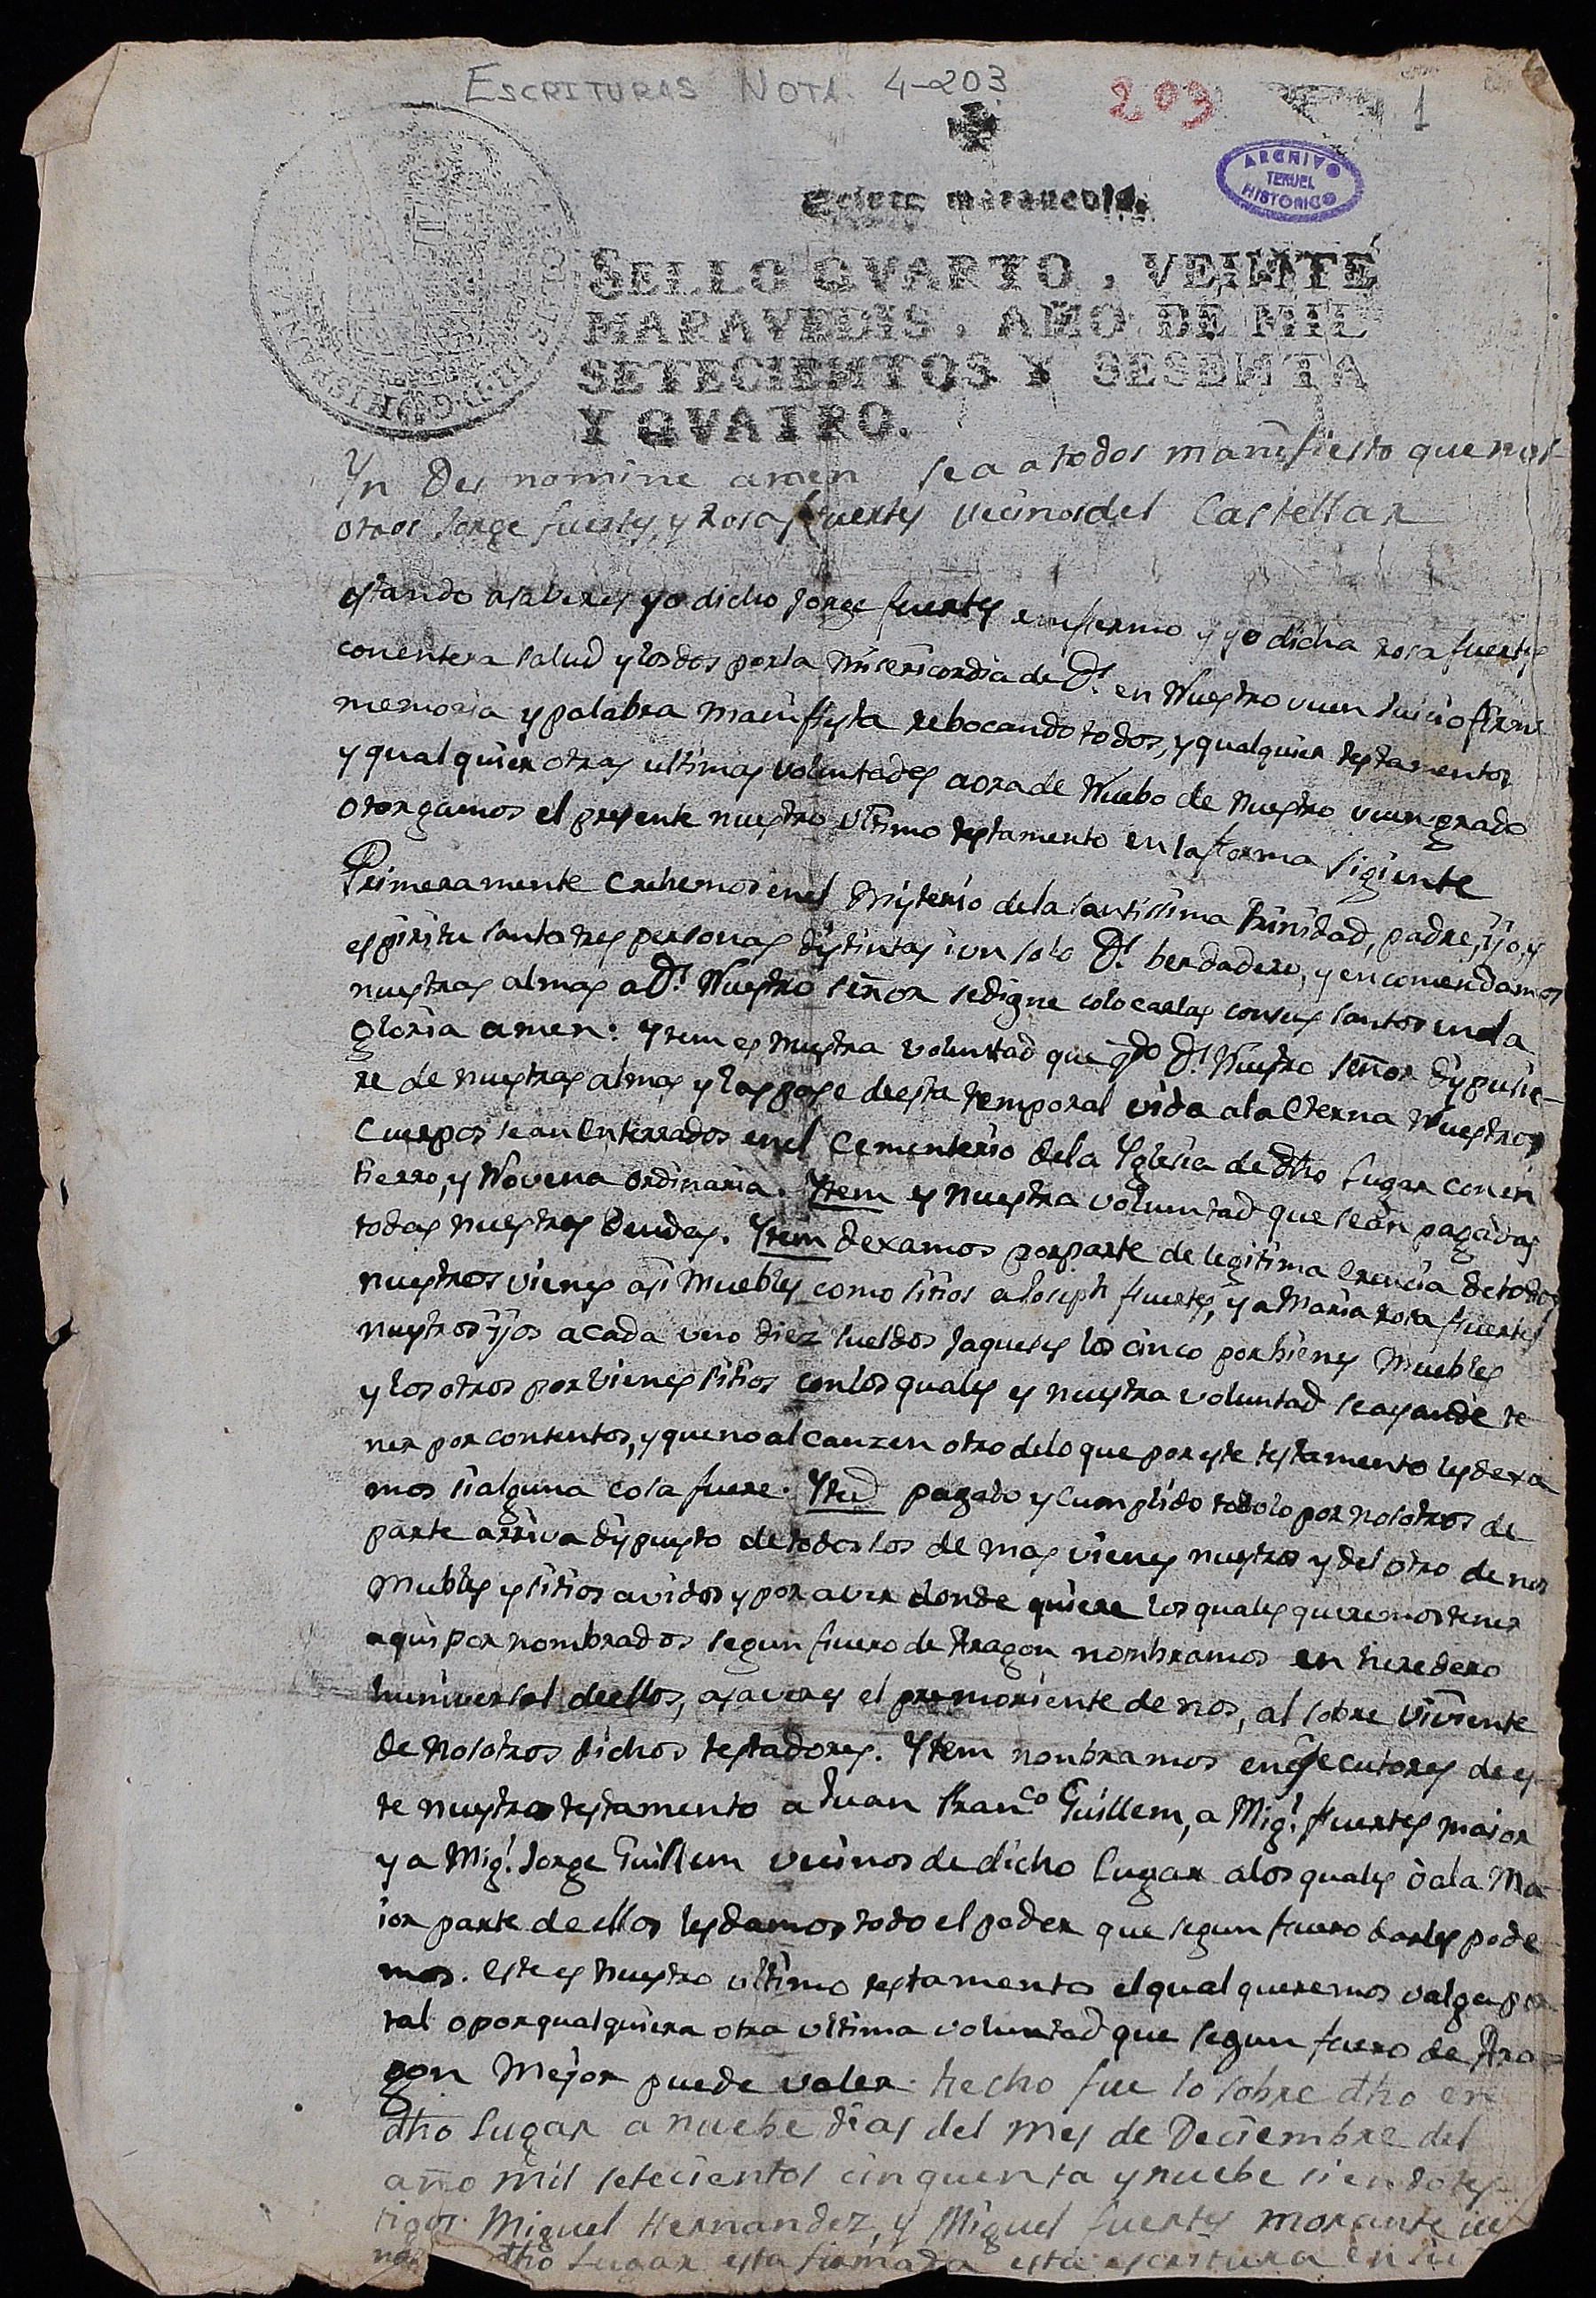 ESCRITURAS NOTA. 4-203
203
1
ARCHIVO
TERUEL
HISTORICO
Veinte maravedis.
SELLO QVARTO, VEINTE
MARAVEDIS, AÑO DE MIL
SETECIENTOS Y SESENTA
Y QVATRO.
Yn Dei nomine amen sea a todos manifiesto que nos-
otros Jorge fuertes, y Rosa fuertes vecinos del Castellar
estando asaber es yo dicho Jorge fuertes enfermo y yo dicha rosa fuertes
con entera salud y los dos por la Misericordia de Ds. en Nuestro vuen Juicio firme
memoria y palabra manifiesta rebocando todos, y qualquier testamentos
y qualquier otras ultimas voluntades aora de Nuebo de nuestro vuen grado
otorgamos el presente nuestro ultimo testamento en la forma sigiente
Primeramente Crehemos en el Misterio de la santissima Trinidad, padre, ijo, y
espiritu santo tres personas distintas i un solo Ds. berdadero, y encomendamos
nuestras almas a Ds. Nuestro señor se digne colocarlas con sus santos en la
gloria amen: Ytem es nuestra voluntad que qdo Ds. Nuestro señor dispusie-
re de nuestras almas y las pase de esta temporal vida a la Eterna Nuestros
Cuerpos sean Enterrados en el Cementerio de la Yglesia de dho Lugar con en
tierro, y Novena ordinaria. Ytem es nuestra voluntad que sean pagadas
todas nuestras deudas. Ytem dexamos por parte de legitima erencia de todos
nuestros vienes asi Muebles como sitios a Joseph fuertes, y a Maria rosa fuertes
nuestros ijos a cada uno diez sueldos Jaqueses los cinco por bienes Muebles
y los otros por vienes sitios con los quales es nuestra voluntad se ayan de te
ner por contentos, y que no alcanzen otro de lo que por este testamento les dexa
mos si alguna cosa fuere. Yttd pagado y cumplido todo lo por nosotros de
parte arriva dispuesto de todos los de mas vienes nuestros y del otro de nos
Mubles y sitios avidos y por aver donde quiere los quales queremos tener
aqui por nombrados segun fuero de Aragon nonbramos en heredero
huniversal de ellos, asaver es el premoriente de nos, al sobre viviente
de nosotros dichos testadores. Ytem nonbramos en ejecutores de es-
te nuestro testamento a Juan Franco. Guillem, a Migl. fuertes maior
y a Migl. Jorge Guillem vecinos de dicho Lugar a los quales o a la Ma
ior parte de ellos les damos todo el poder que segun fuero darles pode
mos. Este es nuestro ultimo testamento el qual queremos valga por
tal o por qualquiera otra ultima voluntad que segun fuero de Ara=
gon Mejor puede valer. hecho fue lo sobre dho en
dho Lugar a nuebe dias del mes de Deciembre del
año mil setecientos cinquenta y nuebe siendo tes-
tigos Miguel Hernandez, y Miguel fuertes morante
dho Lugar esta firmada esta escritura en su